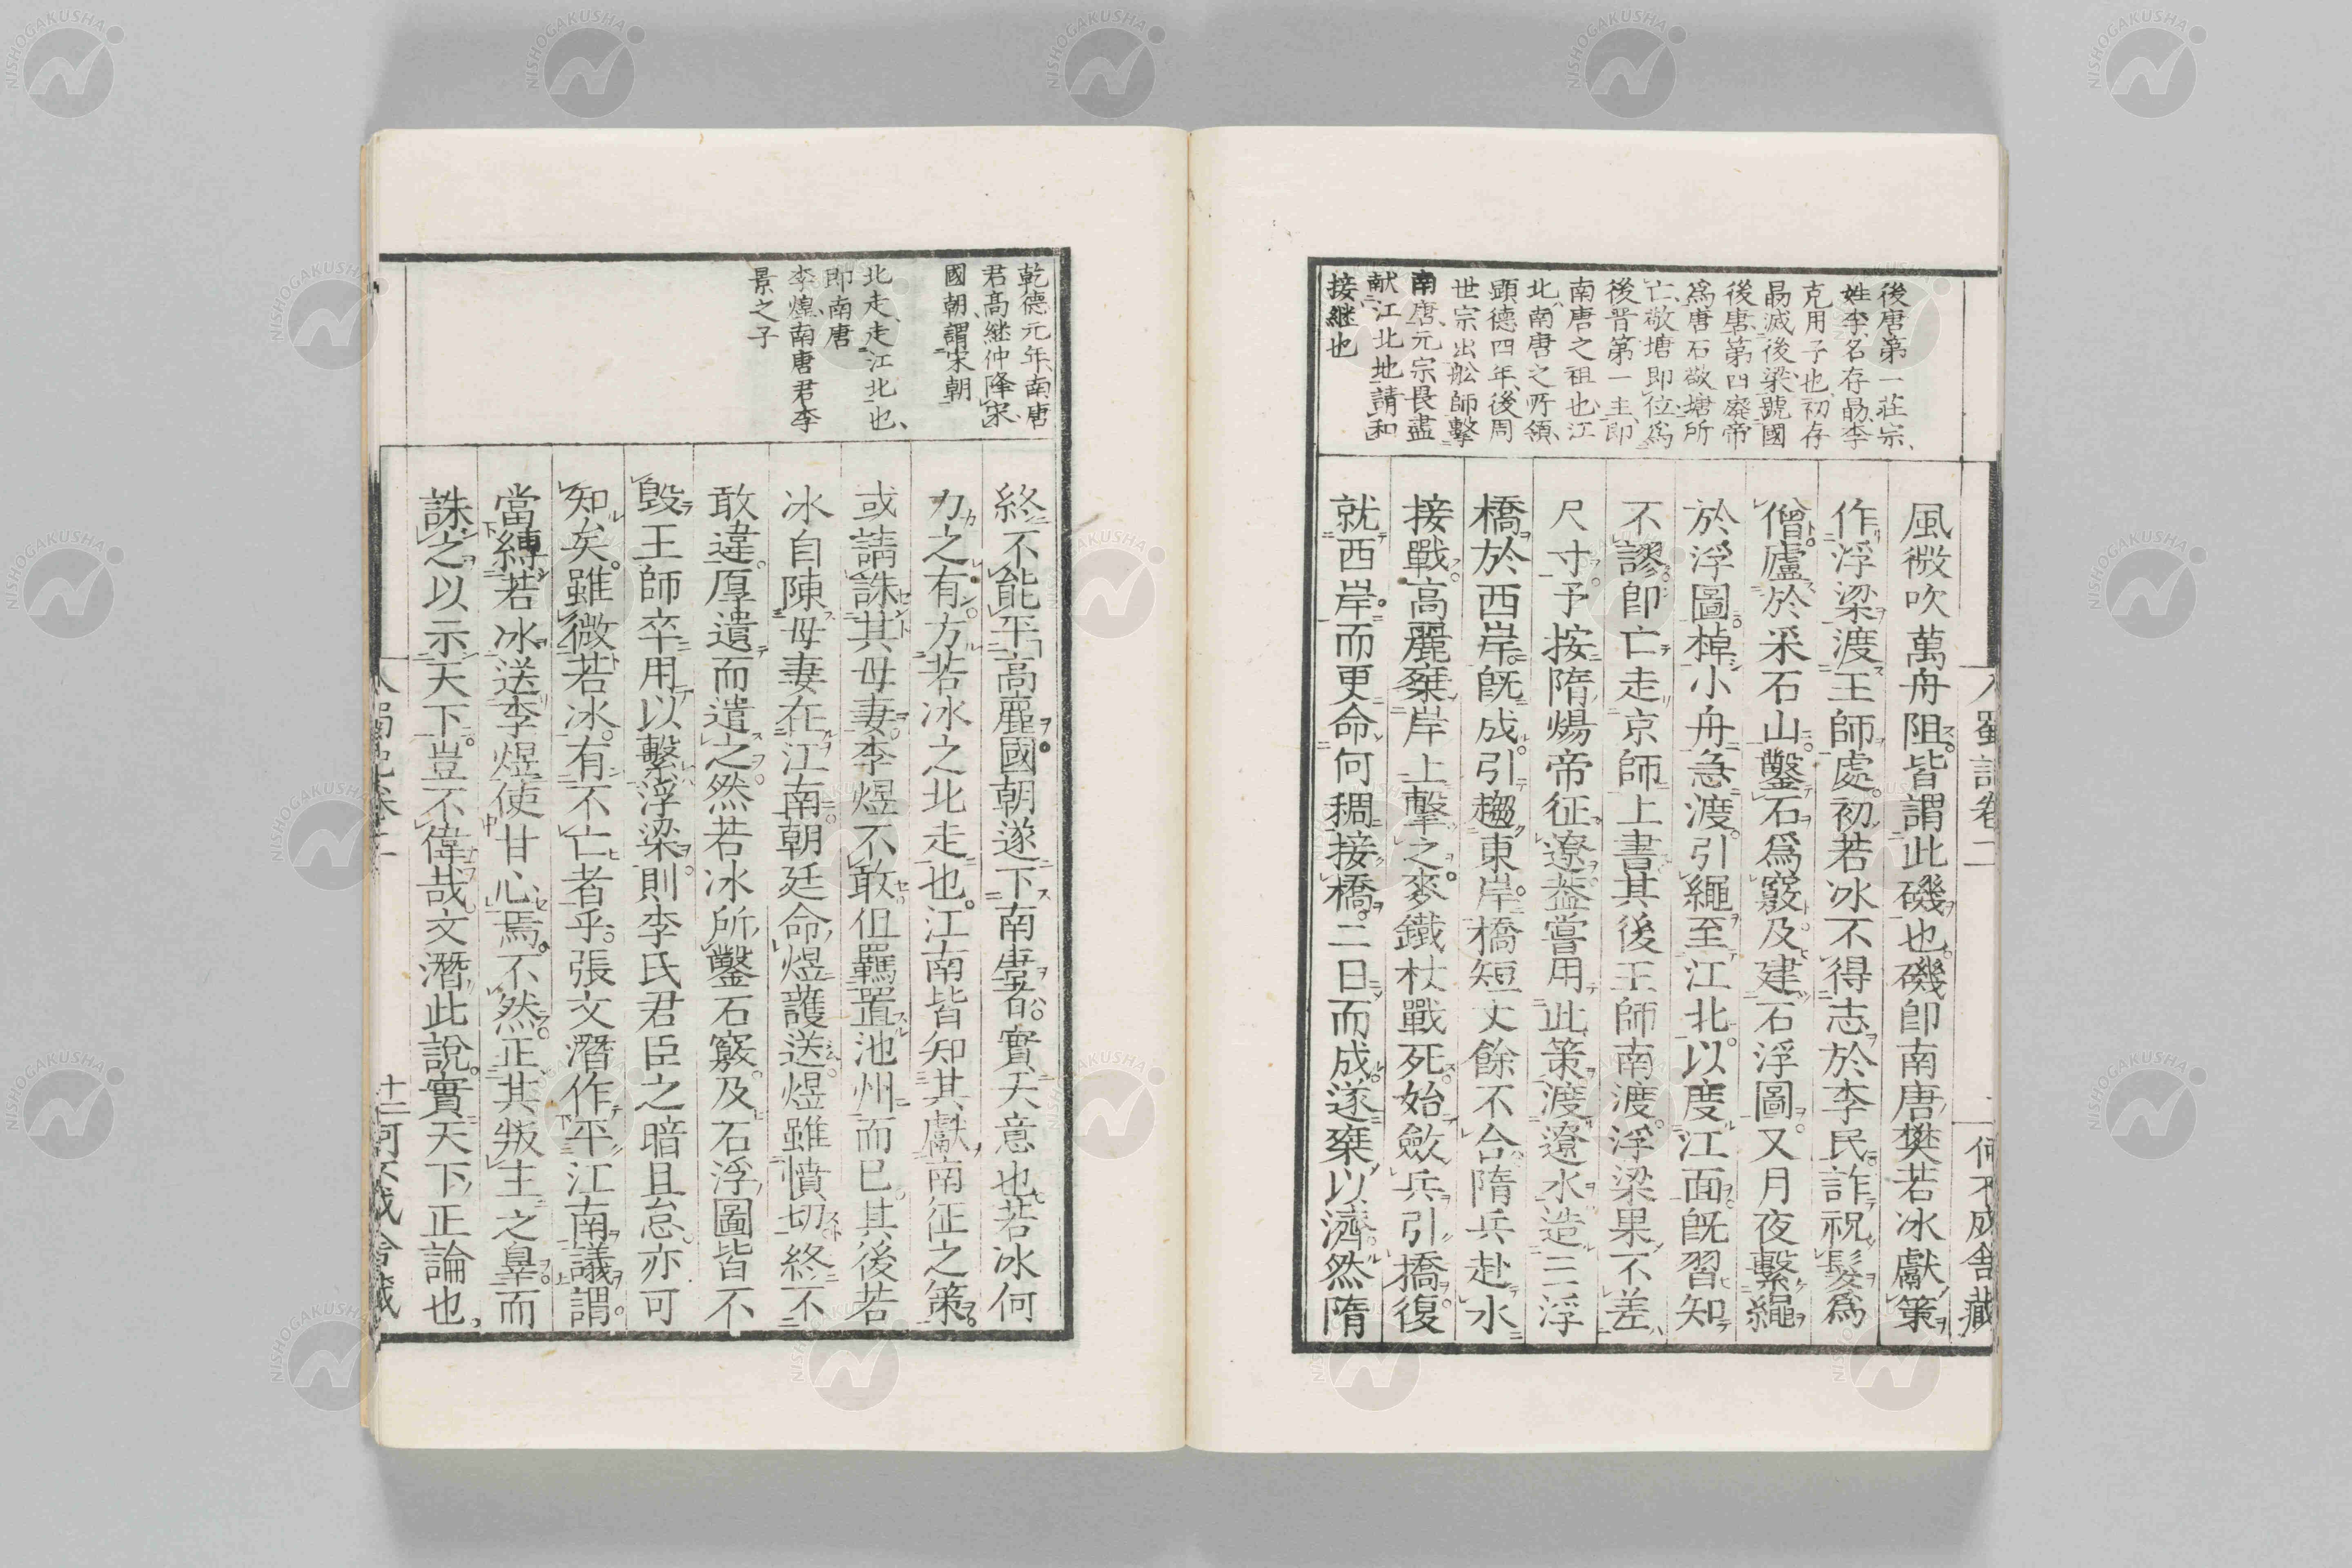 後唐第一莊宗、
姓李、名存勗、李
克用子也、初存
勗滅後梁、號國
後唐、第四廢帝
爲唐石敬塘所
亡、敬塘即位爲
後晋第一主、即
南唐之祖也、江
北、南唐之所領、
顕德四年、後周
世宗出舩師擊
南唐、元宗畏盡
献江北地請和
接継也
入蜀記卷二
何不成舍藏
風微吹萬舟阻。皆謂此磯也。磯卽南唐樊若冰獻策
作浮梁渡王師處。初若冰不得志於李氏。詐祝髮爲
僧。廬於采石山。鑿石爲竅。及建石浮圖。又月夜繫繩
於浮圖。棹小舟急渡。引繩至江北。以度江面。旣習知
不謬。卽亡走京師上書。其後王師南渡。浮梁果不差
尺寸。予按隋煬帝征遼。葢嘗用此策渡遼水。造三浮
橋於西岸。旣成。引趨東岸。橋短丈餘不合。隋兵赴水
接戰。高麗乗岸上擊之。麥鐵杖戰死。始斂兵。引橋復
就西岸。而更命何稠接橋。二日而成。遂乗以濟。然隋
乾德元年、南唐
君高継沖降宋、
國朝、謂宋朝
北走、走江北也、
即南唐
李煜、南唐君李
景之子
終不能平高麗。國朝遂下南唐者。實天意也。若冰何
力之有。方若冰之北走也。江南皆知其獻南征之策。
或請誅其母妻。李煜不敢。但羈置池州而已。其後若
冰自陳母妻在江南。朝廷命煜護送。煜雖憤切。終不
敢違。厚遺而遣之。然若冰所鑿石竅。及石浮圖皆不
毀。王師卒用以繫浮梁。則李氏君臣之暗且怠。亦可
知矣。雖微若冰。有不亡者乎。張文潛作平江南議。謂。
當縛若冰送李煜使甘心焉。不然。正其叛主之辠。而
誅之以示天下。豈不偉哉。文潛此說。實天下正論也。
十二